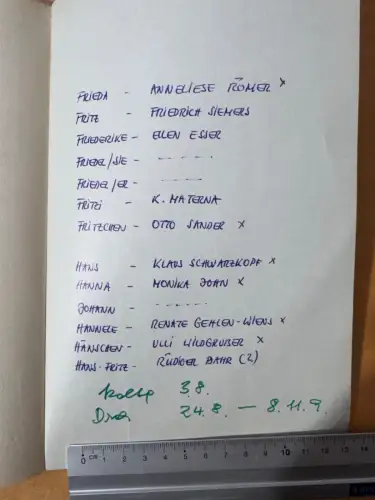 FRIEDA - ANNELIESE RÖMER x
FRITZ - FRIEDRICH SIEMERS
FRIEDERIKE - ELLEN ESSER
FRIEDEL/SIE - - - - - -
FRIEDEL/ER - - - - -
FRITZI - K. MATERNA
FRITZCHEN - OTTO SANDER x
HANS - KLAUS SCHWARZKOPF x
HANNA - MONIKA JOHN x
JOHANN - - - - - -
HANNELE - RENATE GEHLEN-WIENS x
HÄNSCHEN - ULLI WILDGRUBER x
HANS-FRITZ - RÜDIGER BAHR (2)
3.8.
24.8. — 8.11.9.
0 cm 1 2 3 4 5 6 7 8 9 10 11 12 13 14